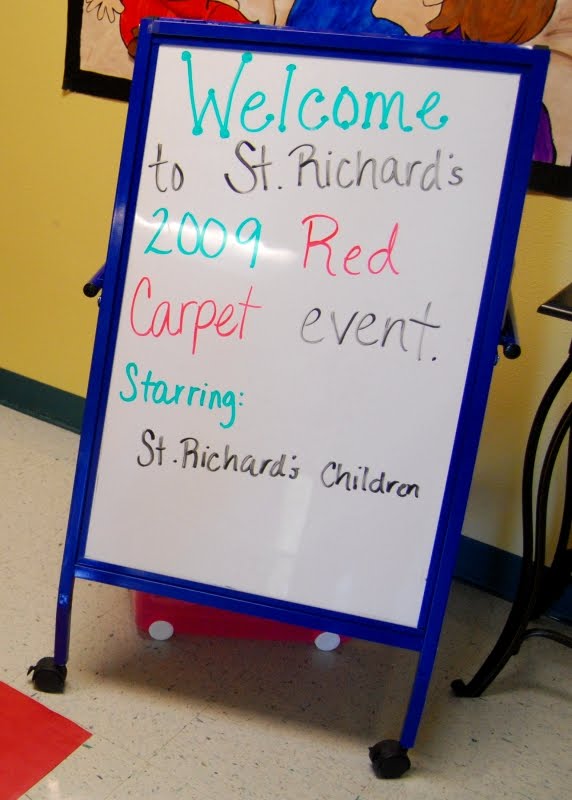 Welcome
to St. Richard's
2009 Red
Carpet event.
Starring:
St. Richard's Children